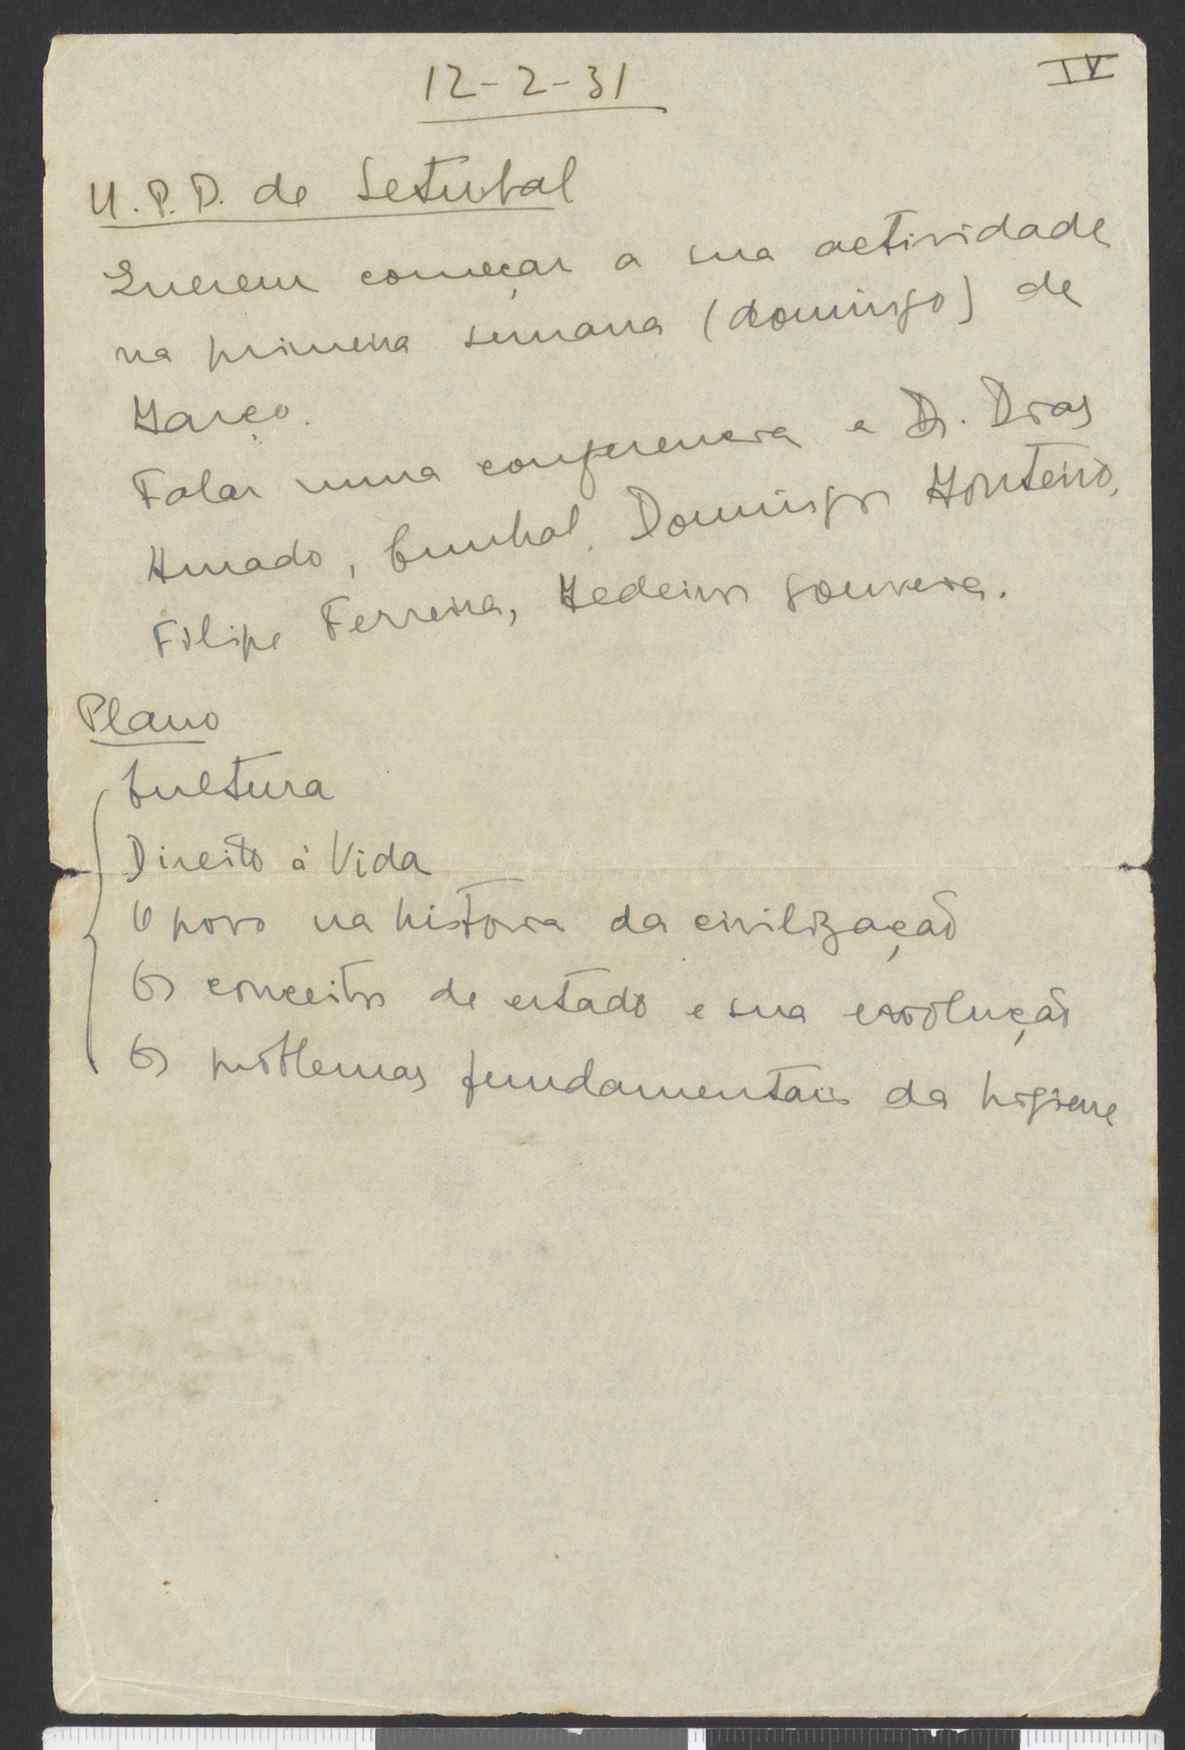 12-2-31
IV
U.P.D. de Setubal
Querem começar a sua actividade
na primeira semana (domingo) de
Março.
Falar numa conferencia e Dr. Dias
Amado, Cunhal. Domingos Monteiro,
Filipe Ferreira, Medeiros Gouveia.
Plano
Cultura
Direito á Vida
O povo na historia da civilização
Os conceitos de estado e sua evolução
Os problemas fundamentais da higiene